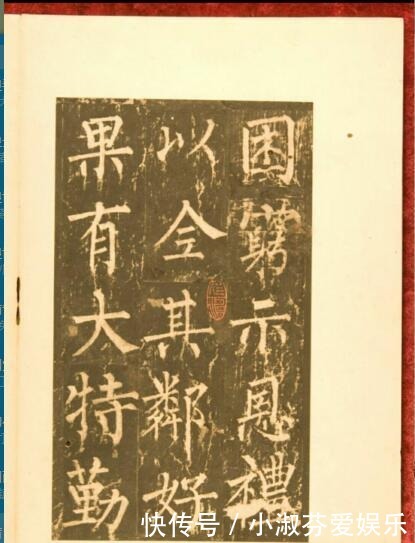 困窮示恩禮
以全其鄰好
果有大特勤
快传号 / 小淑芬爱娱乐